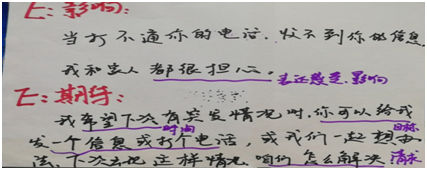 E:影响:
当打不通你的电话,收不到你的信息,
我和家人都很担心。
影响
E:期待:
我希望下次有突发情况时,你可以给我
时间 目标
发一个信息或打个电话,或我们一起想办
法,下次出现这样情况,咱们怎么解决